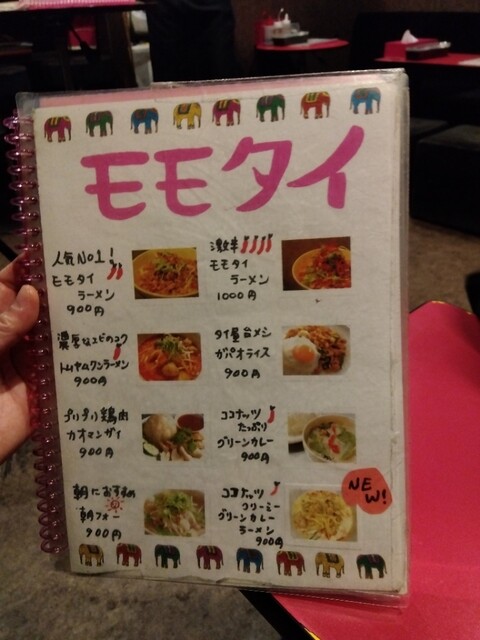 モモタイ
人気No1!
モモタイ
ラーメン
900円
激辛
モモタイ
ラーメン
1000円
濃厚なエビのコク
トムヤムクンラーメン
900円
タイ屋台メシ
ガパオライス
900円
プリプリ鶏肉
カオマンガイ
900円
ココナッツ
たっぷり
グリーンカレー
900円
朝におすすめ
朝フォー
900円
ココナッツ
クリーミー
グリーンカレー
ラーメン
900円
NEW!